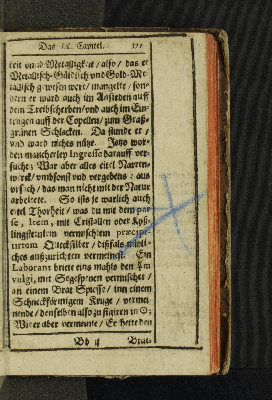 Das ix. Capitel. 371
keit vnnd Metalligkeit / also / das er
Metallisch-Güldisch vnd Gold-Me-
tallisch gewesen were / mangelte / son-
dern er ward auch im Ansieden auff
dem Treibscherben / vnd auch im Ein-
trengen auff der Copellen / zum Graß-
grünen Schlacken. Da stunde er /
vnd ward nichts nütze. Jatzo wor-
den mancherley Ingresse darauff ver-
sucht; War aber alles eitel Narren-
werck / vmbsonst vnd vergebens: aus
vrsach / das man nicht mit der Natur
arbeitete. So ists je warlich auch
eitel Thorheit / was du mit dem par
se, Item, mit Cristallen oder Koß-
lingsteinlein vermischten præcipi-
tirtem Quecksilber / dißfals nützli-
ches außzurichten vermeinest. Ein
Laborant briete eins mahls den ☿m
vulgi, mit Segespenen vermischet /
an einem Brat Spiesse / inn einem
Schneckförmigem Kruge / vermei-
nende / denselben also zu figiren in ☉;
Wie er aber vermeinte / Er hette den
Bb ij Brat-